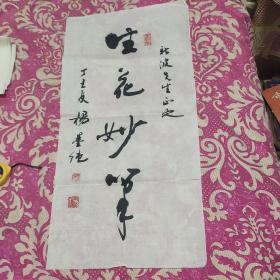 北波先生正之
生花妙笔
丁丑夏 杨墨